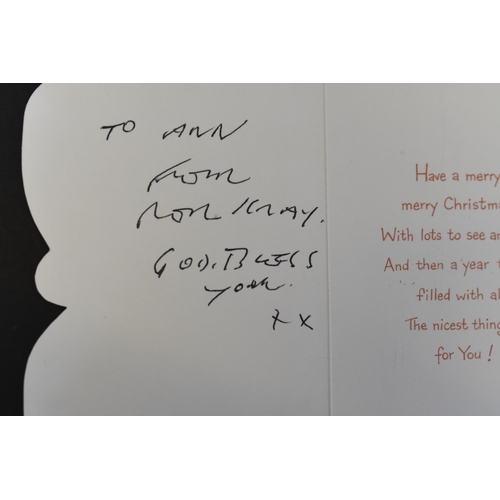 TO ANN
from
RON KRAY.
GOD. BLESS
you.
x x
Have a merry
merry Christma
With lots to see an
And then a year
filled with al
The nicest thing
for You !